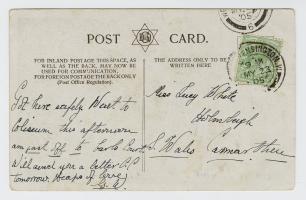 POST CARD.
FOR INLAND POSTAGE THIS SPACE, AS
WELL AS THE BACK, MAY NOW BE
USED FOR COMMUNICATION.
FOR FOREIGN POSTAGE THE BACK ONLY
(Post Office Regulation).
THE ADDRESS ONLY TO BE
WRITTEN HERE
Got here safely Went to
Coliseum this afternoon
am just off to Earls Court
Will send you a better P.C
tomorrow. Heaps of love
Miss Lucy White
S. Wales
KENSINGTON. W.
MY 22
05